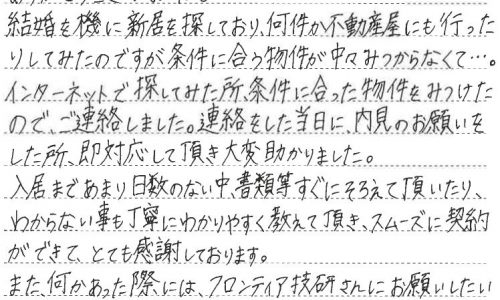 結婚を機に新居を探しており、何件か不動産屋にも行った
りしてみたのですが条件に合う物件が中々みつからなくて…。
インターネットで探してみた所、条件に合った物件をみつけた
ので、ご連絡しました。連絡をした当日に、内見のお願いを
した所、即対応して頂き大変助かりました。
入居まであまり日数のない中、書類等すぐにそろえて頂いたり、
わからない事も丁寧にわかりやすく教えて頂き、スムーズに契約
ができて、とても感謝しております。
また、何かあった際には、フロンティア技研さんにお願いしたい